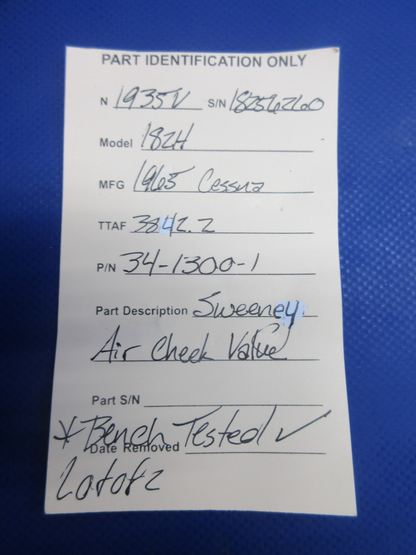 PART IDENTIFICATION ONLY
N 1935V S/N 18256260
Model 182H
MFG 1965 Cessna
TTAF 3842.2
P/N 34-1300-1
Part Description Sweeney
Air Check Valve
Part S/N
* Bench Tested ✓
Date Removed
2 of 2